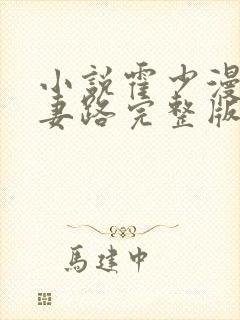 小説霍少漫
妻路完整版
馬建中